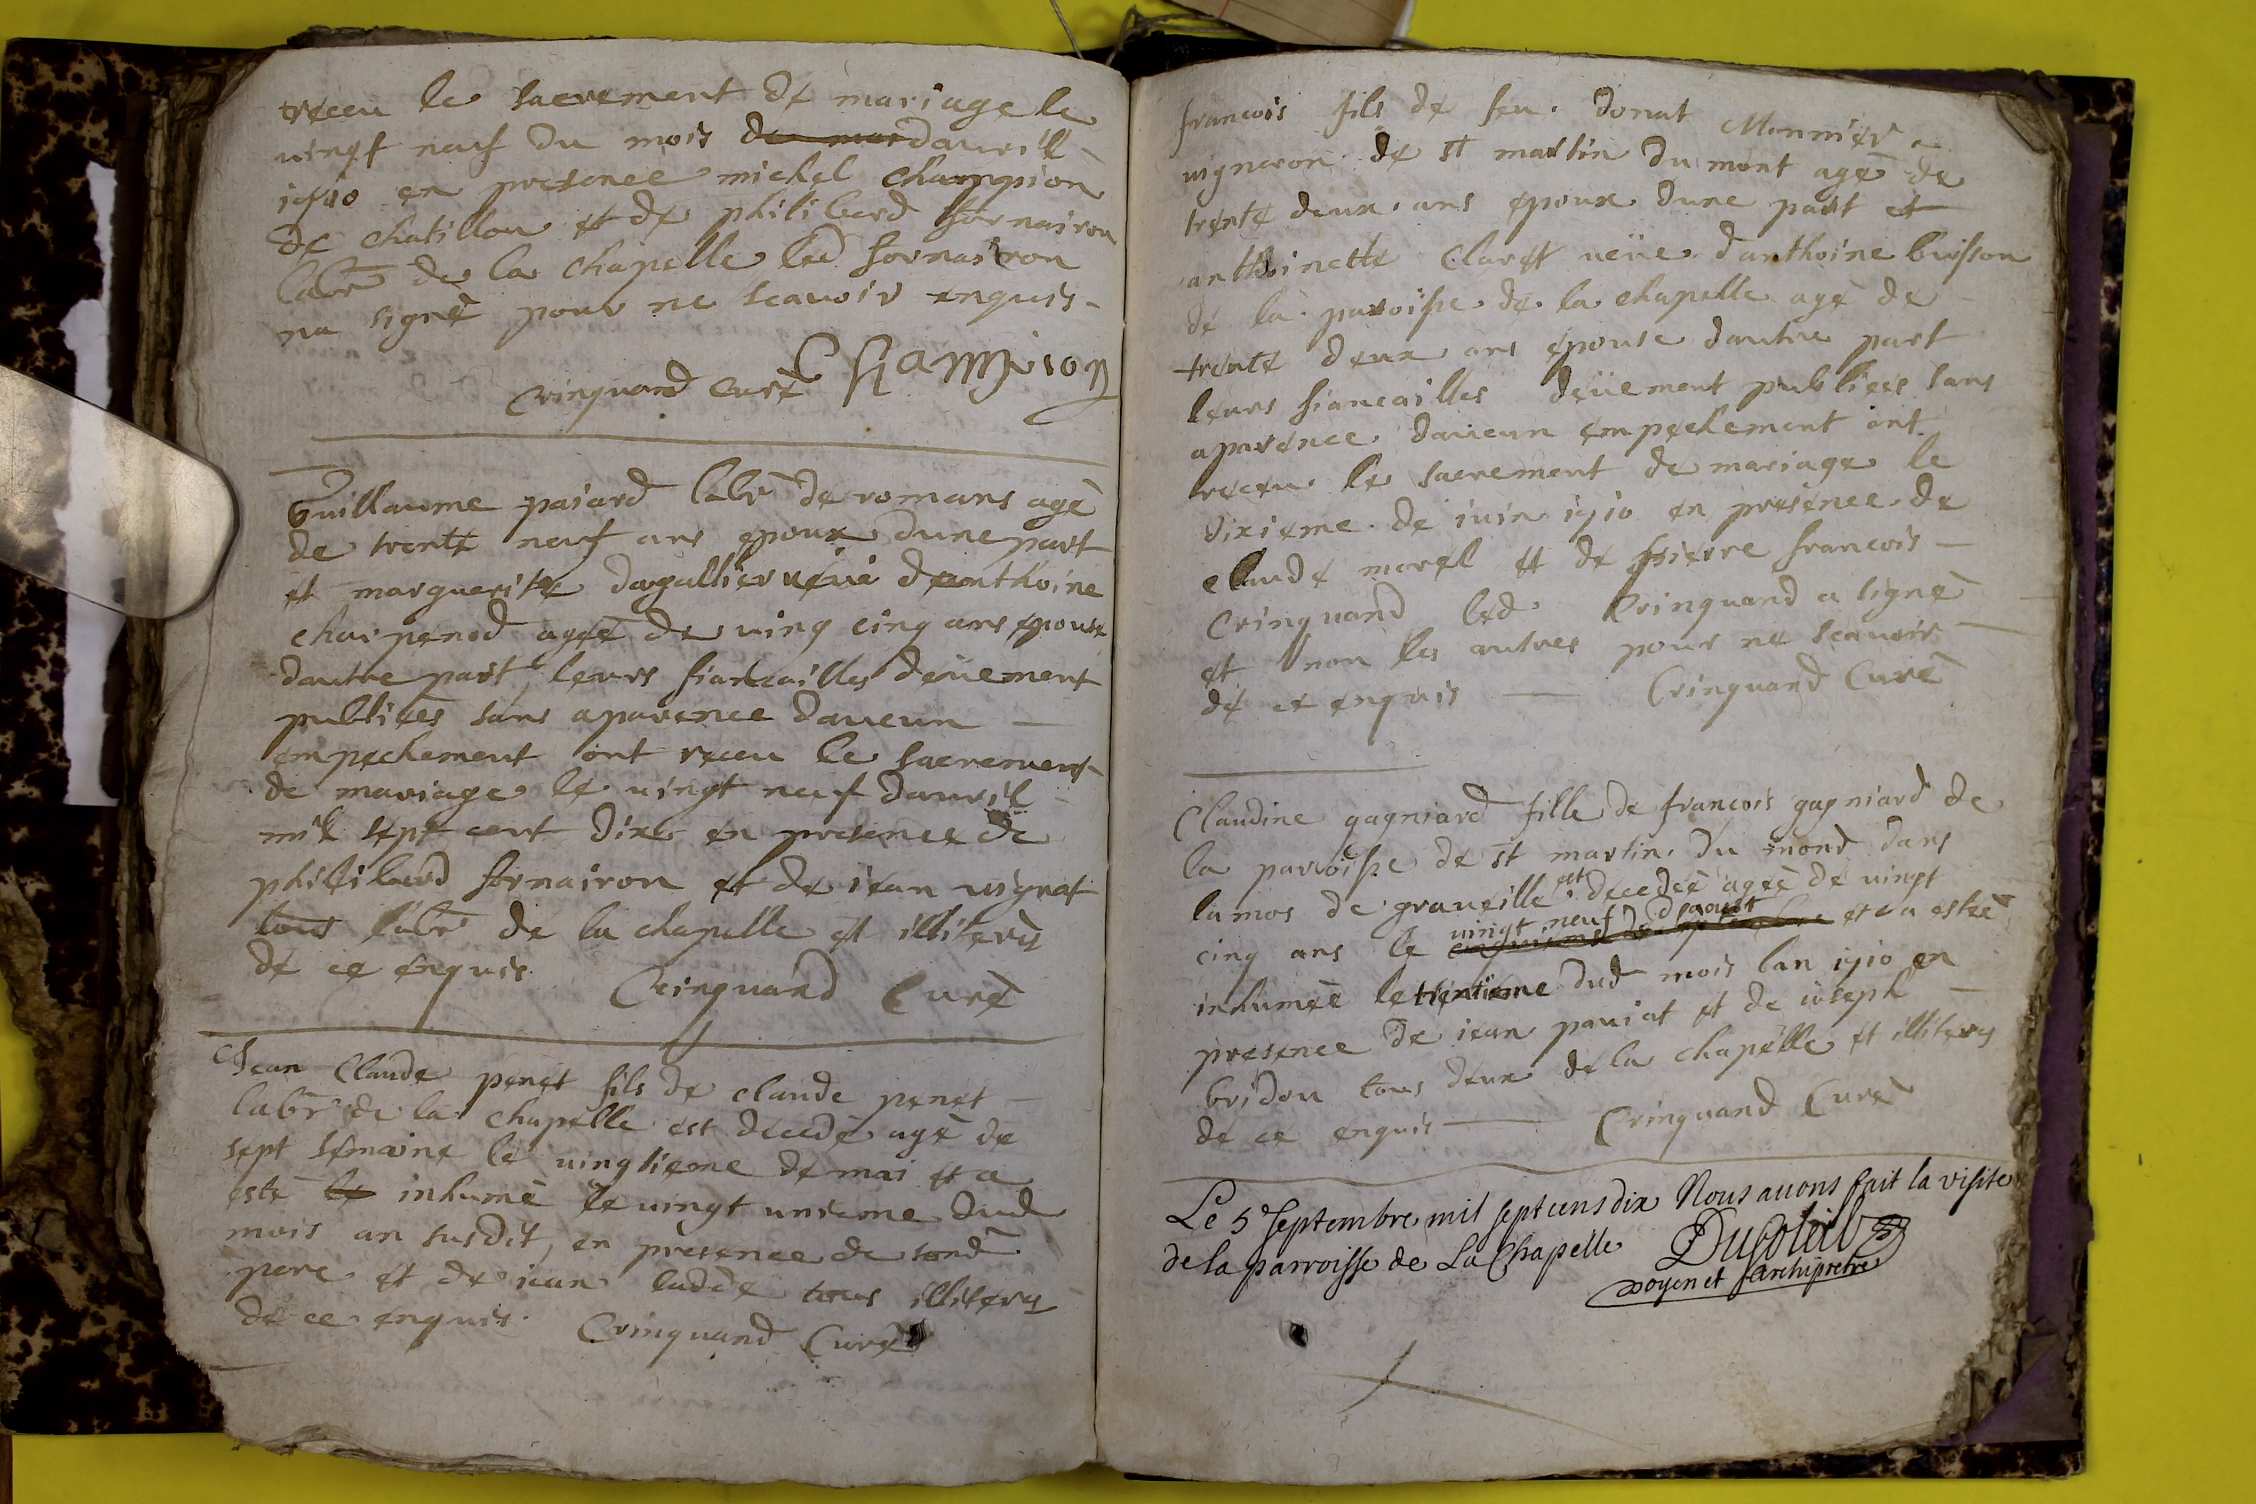 receu le sacrement de mariage le
vingt neuf du mois de mar dauril
1710 en presence michel champion
de chatillon et de philiberd fornairon
labr de la chapelle led fornairon
na signè pour ne scauoir enquis
Champion
Crinquand curè
Guillaume paiard labr de romans agè
de trente neuf ans epoux dune part
et marguerite dagallier veue danthoine
charpenod ageè de ving cinq ans epouse
dautre part leurs fiancailles deüement
publieès sans aparence daucun
empechement ont receu le sacrement
de mariage le vingt neuf dauril
mil sept cent dix en presence de
philiberd fornairon et de iean vignat
tous labr de la chapelle et illiterés
de ce enquis Crinquand Curè
Jean Claude penet fils de claude penet
labr de la chapelle est decedè agè de
sept semaine le vingtieme de mai et a
estè le inhumè le vingt unieme dud
mois an susdit, en presence de sond
pere et de iean tous illiterés
de ce enquis. Crinquand Curè
francois fils de feu donat Monnier
vigneron de st martin du mont agè de
trente deux ans epoux dune part et
anthoinette Claret veüe danthoine buisson
de la paroisse de la chapelle agè de
trente deux ans epouse dautre part
leurs fiancailles deüement publieès sans
aparence daucun empechement ont
receu le sacrement de mariage le
dixieme de iuin 1710 en presence de
claude morel et de pierre francois
Crinquand led Crinquand a signè
et non les autres pour ne scauoir
de ce enquis Crinquand Curè
Claudine gagniard fille de francois gagniard de
la paroisse de st martin du mond dans
lamos de graueille est decedeè ageè de vingt
vingt neuf daoust
cinq ans le cinquieme de septembre et a esteè
inhumeè le trentieme dud mois lan 1710 en
presence de iean pauiat et de ioseph
bridon tous deux de la chapelle et illiterés
de ce enquis Crinquand Curè
Le 5e septembre mil sept cens dix Nous auons fait la visite
de la parroisse de La Chapelle
doyen et archiprêtre